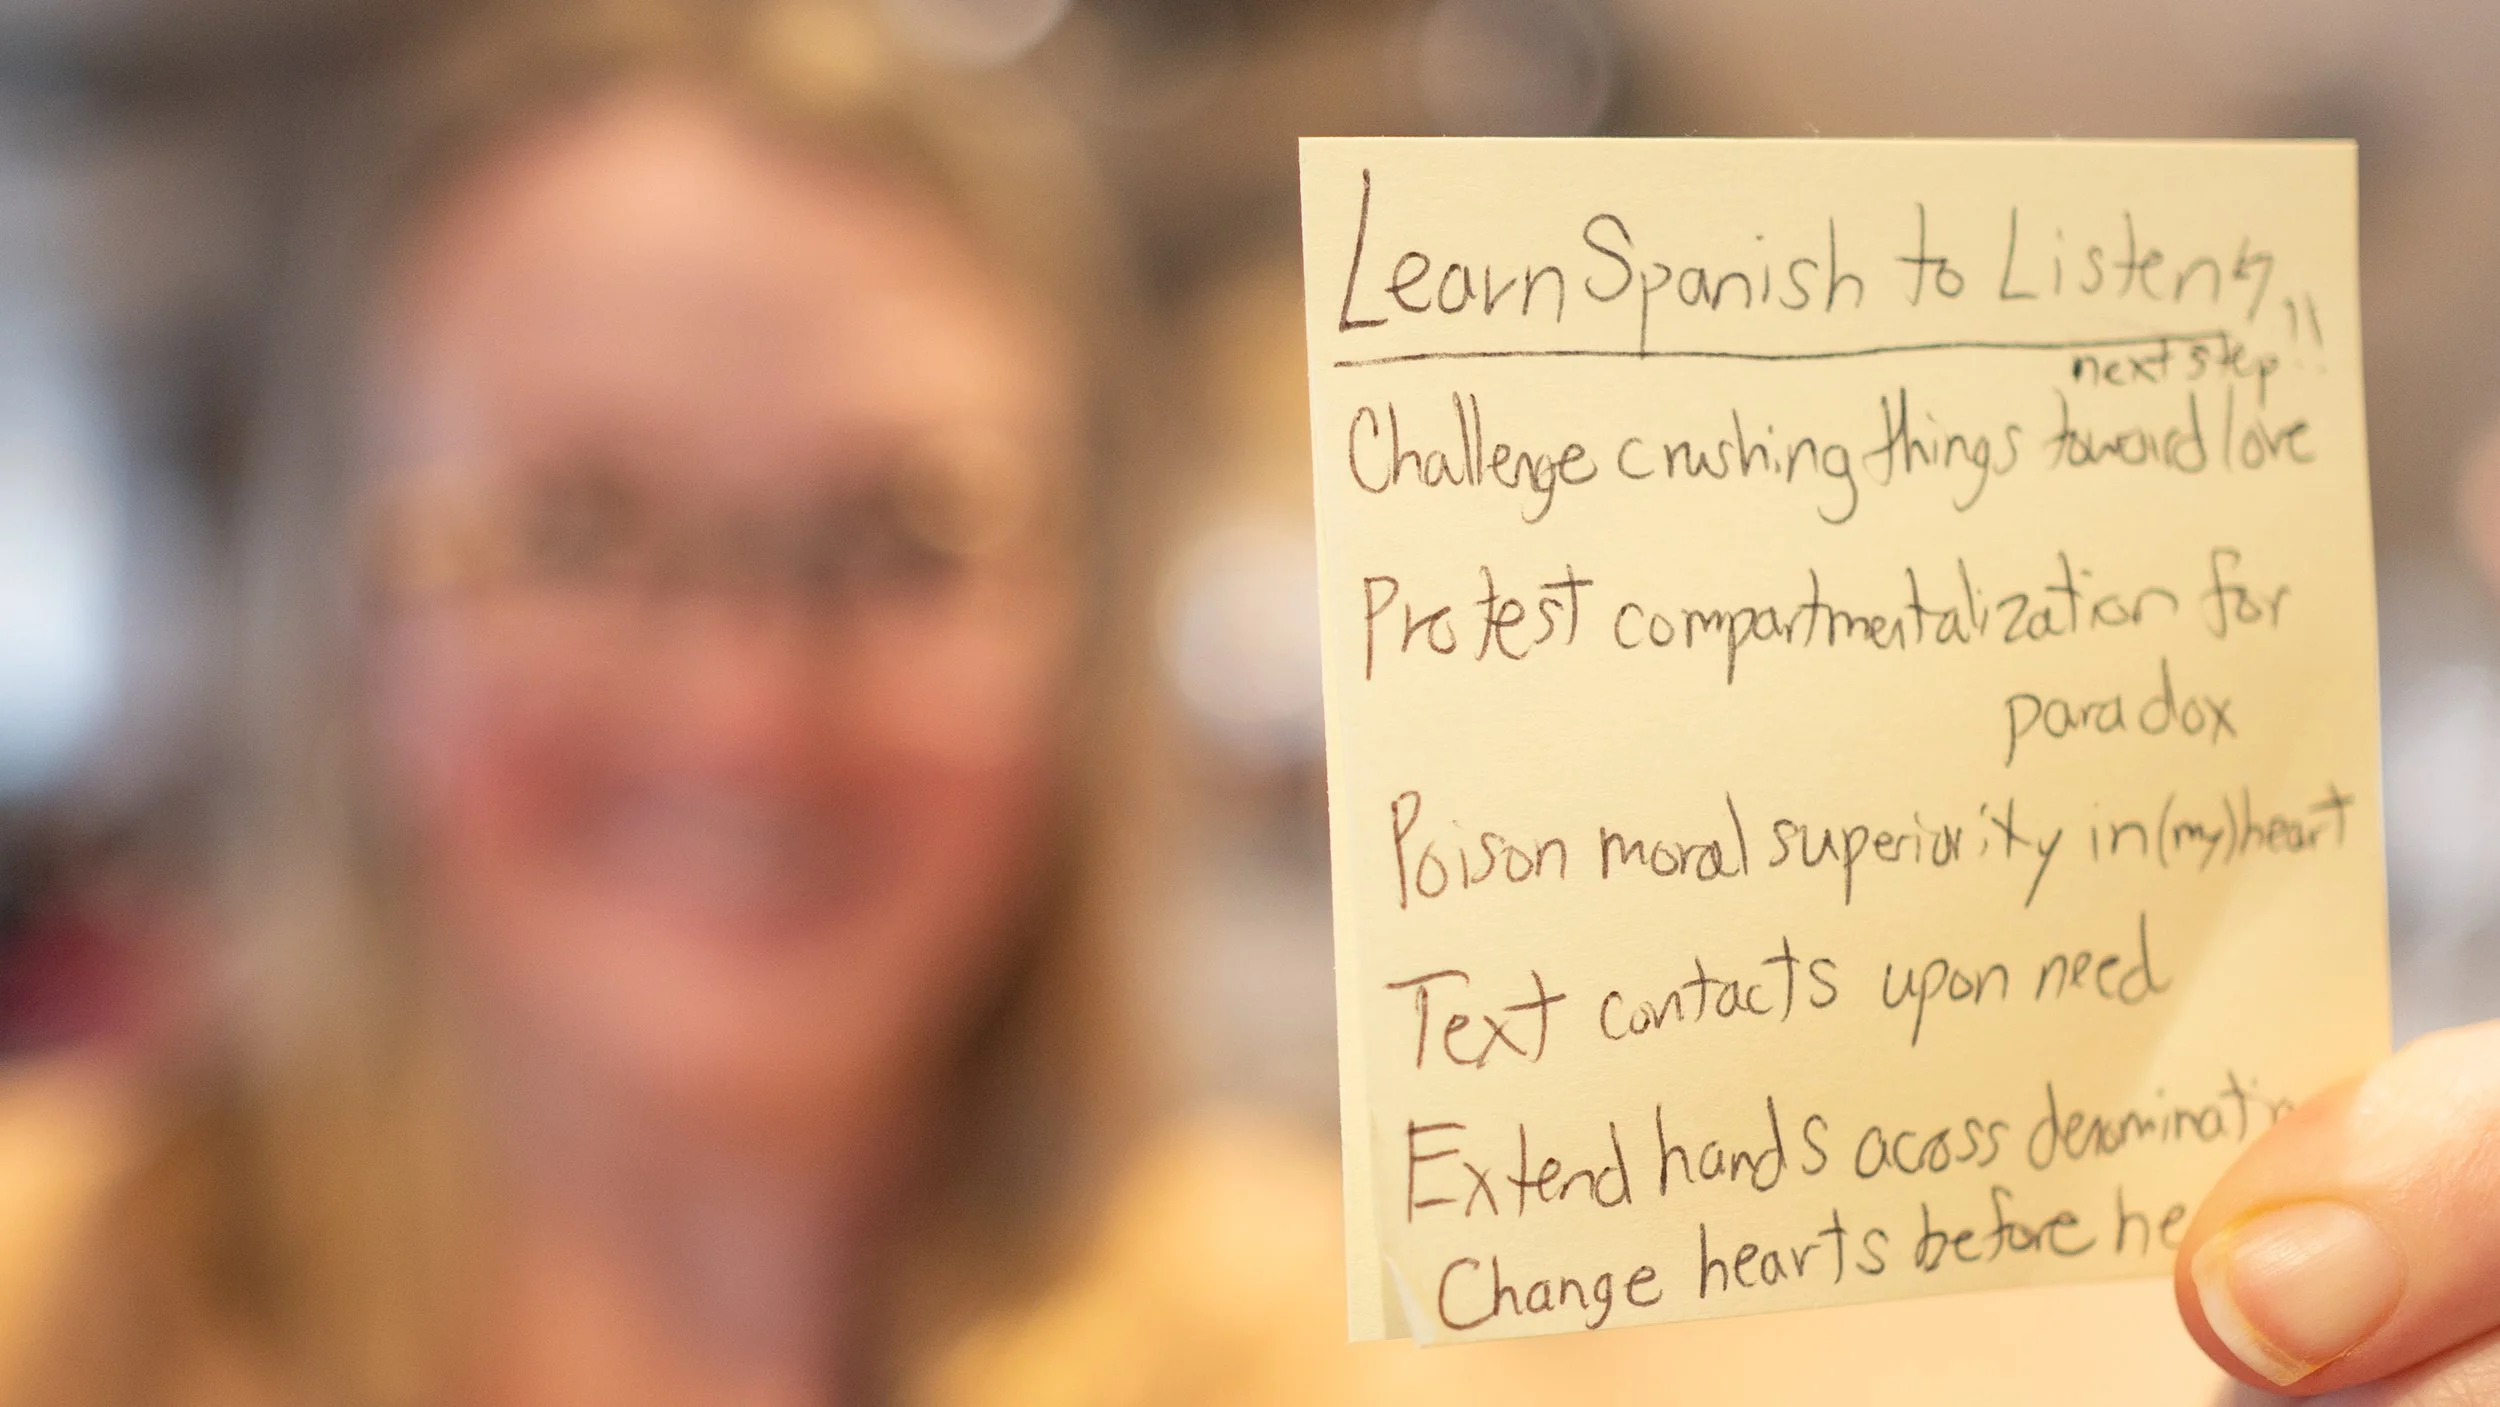 Learn Spanish to Listen
next step!!
Challenge crushing things toward love
Protest compartmentalization for
paradox
Poison moral superiority in (my) heart
Text contacts upon need
Extend hands across denominatio
Change hearts before he